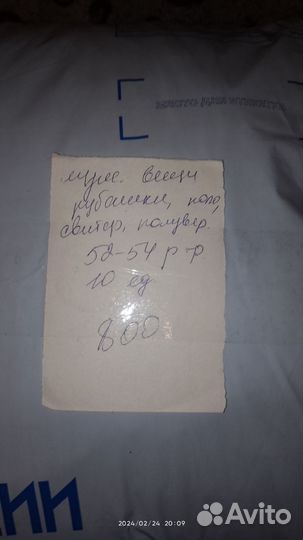 муж. вещи
рубашки, поло,
свитер, полувер.
52-54 р-р
10 ед
800
ИИ
2024/02/24 20:09
Avito